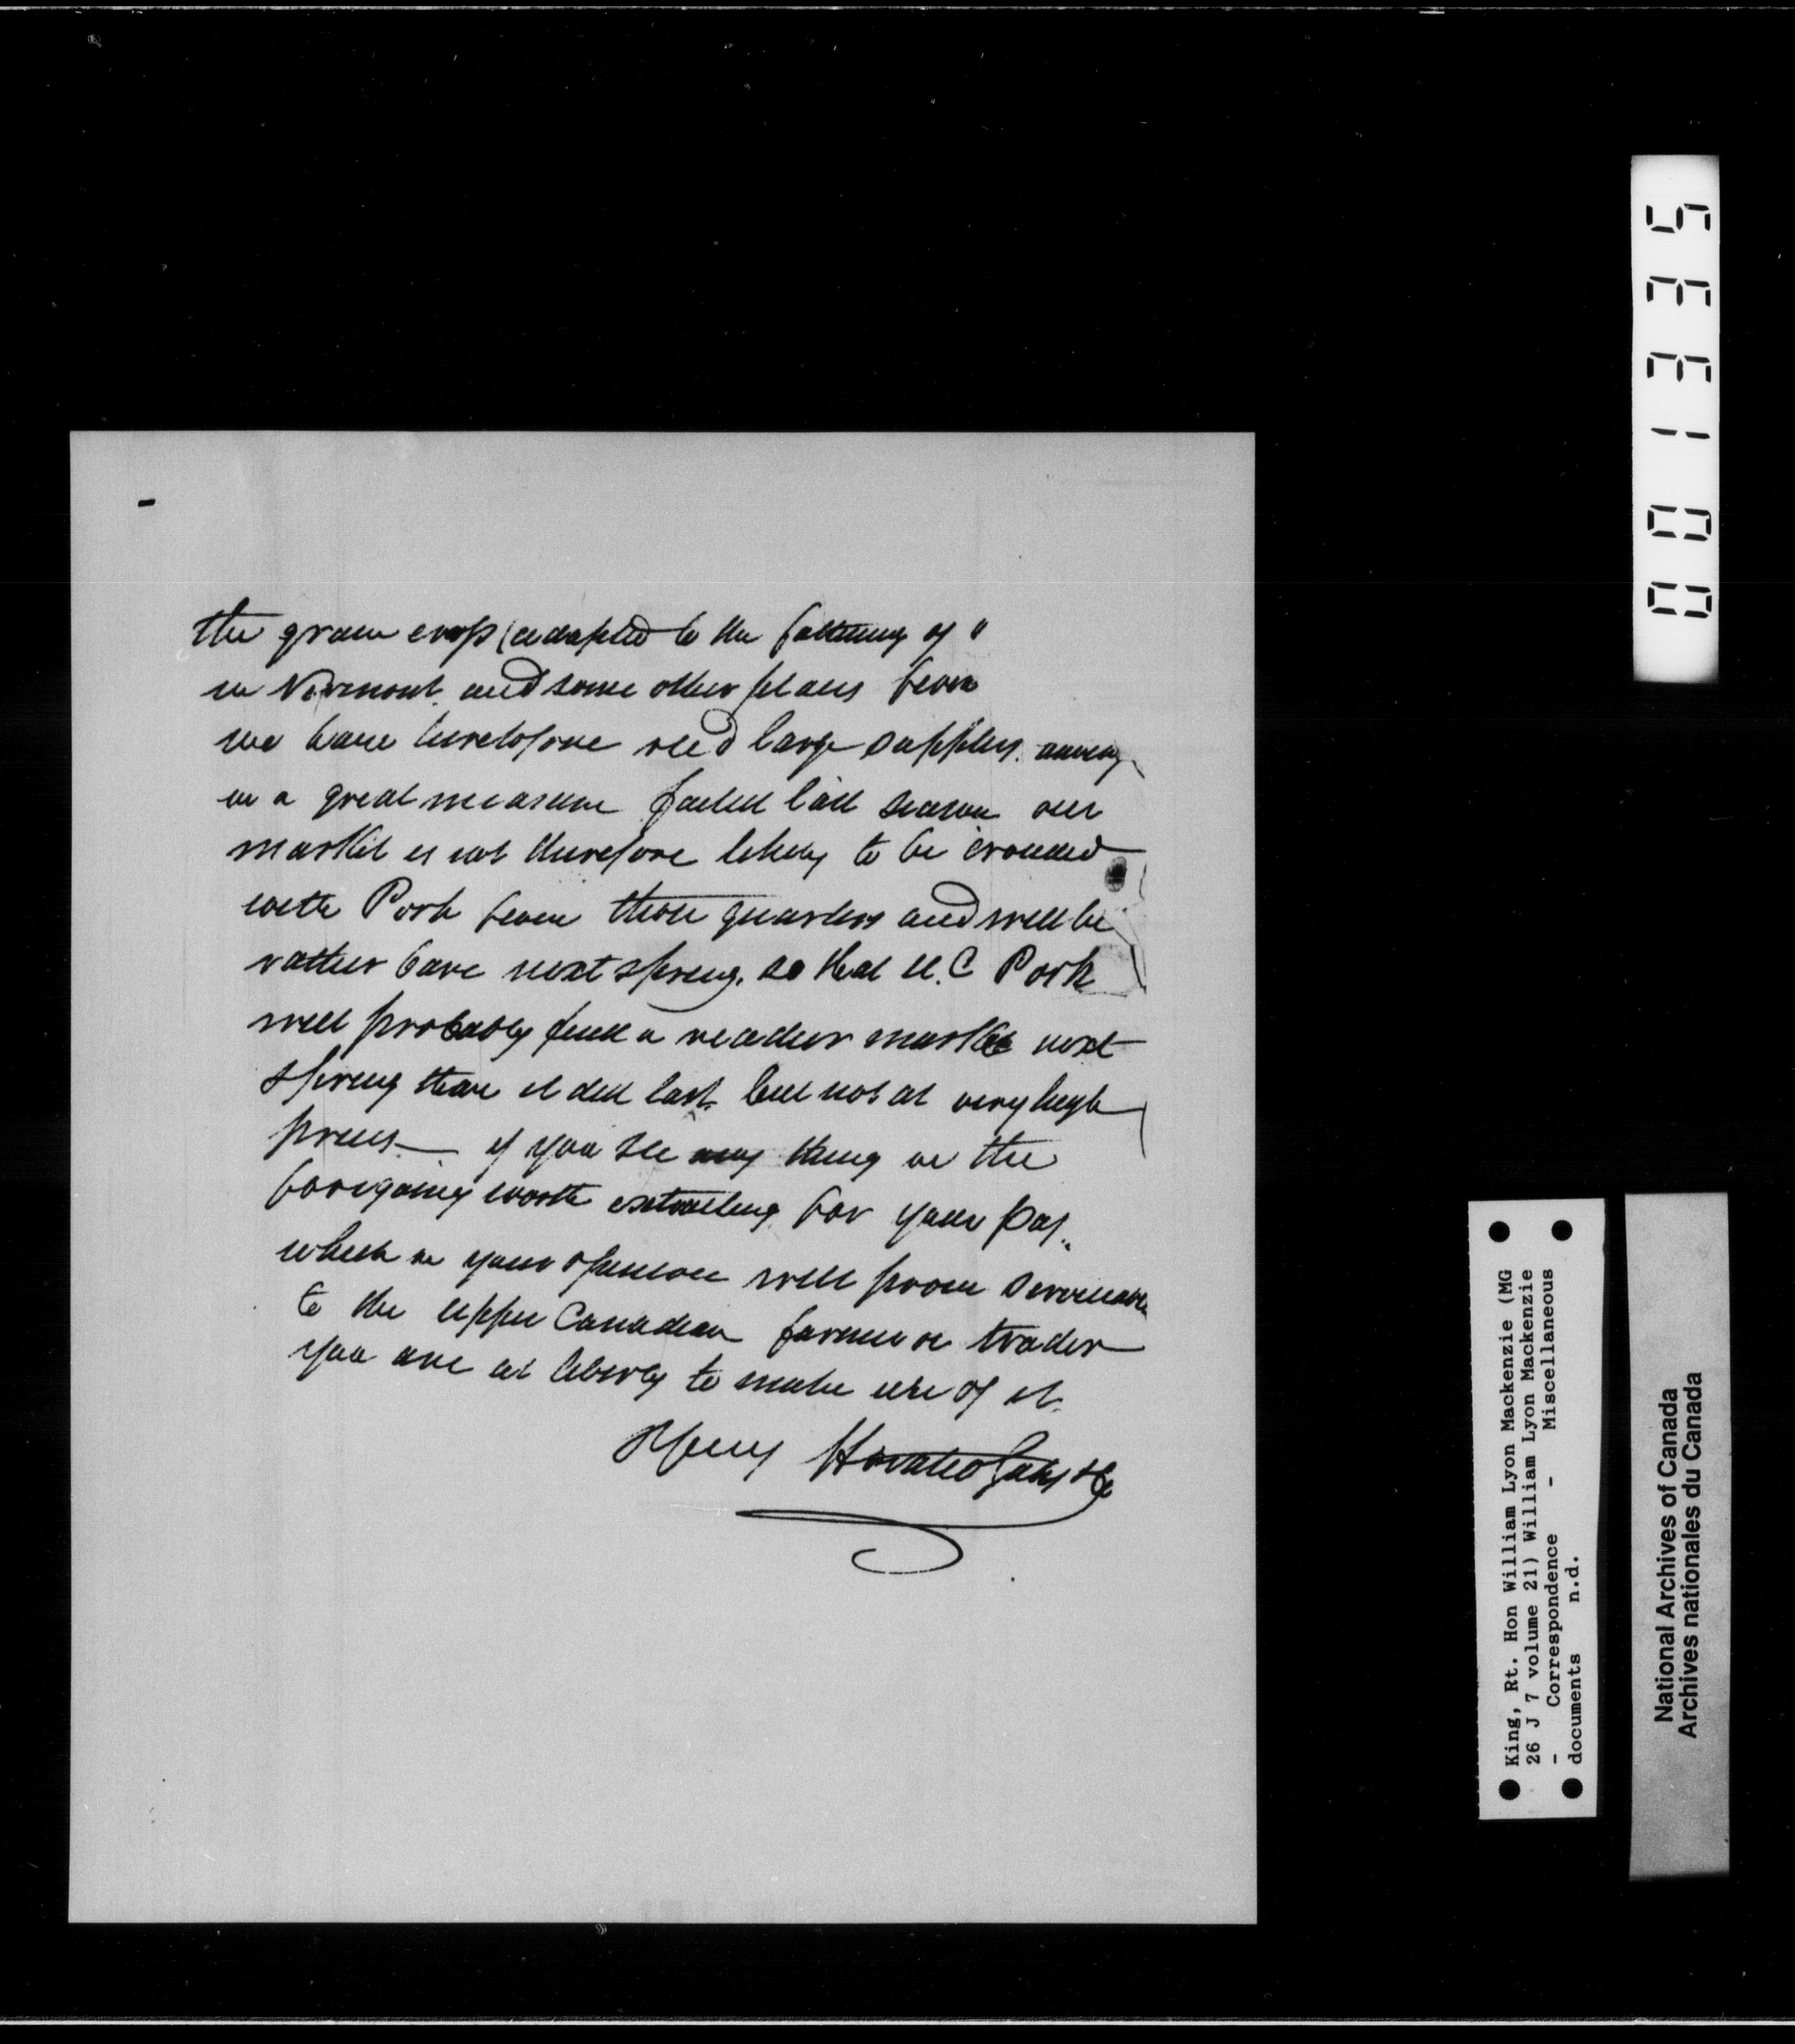 the grain crop (adapted to the fattening of "
in Vermont. and some other places from
we have heretofore rec'd large supplies. having
in a great measure failed last season our
market is not therefore likely to be crowded
with Pork from those quarters and will be
rather bare next spring. so that U.C Pork
will probably find a readier market next
spring than it did last. but not at very high
prices — if you see any thing in the
foregoing worth extracting for your pa
which in your opinion will prove serviceable
to the upper Canadian farmer or trader
you are at liberty to make use of it.
Horatio Gates & Co
001335
King, Rt. Hon William Lyon Mackenzie (MG
26 J 7 volume 21) William Lyon Mackenzie
- Correspondence - Miscellaneous
documents n.d.
National Archives of Canada
Archives nationales du Canada